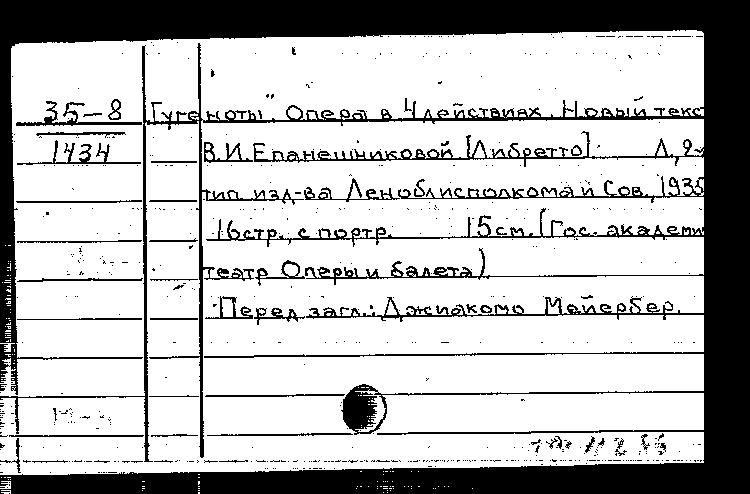 35-8
1434
Гугеноты". Опера в 4 действиях. Новый текс
В.И.Епанешниковой [Либретто]. Л., 2-
тип. изд-ва Леноблисполкома и Сов., 1935
16стр., с портр. 15см. (Гос. академи
театр Оперы и балета)
Перед загл.: Джиакомо Мейербер.